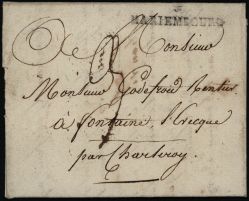 MARIEMBOURG
Monsieur
Monsieur Godefroid Rentier
à fontaine l'Evecque
par Charleroy